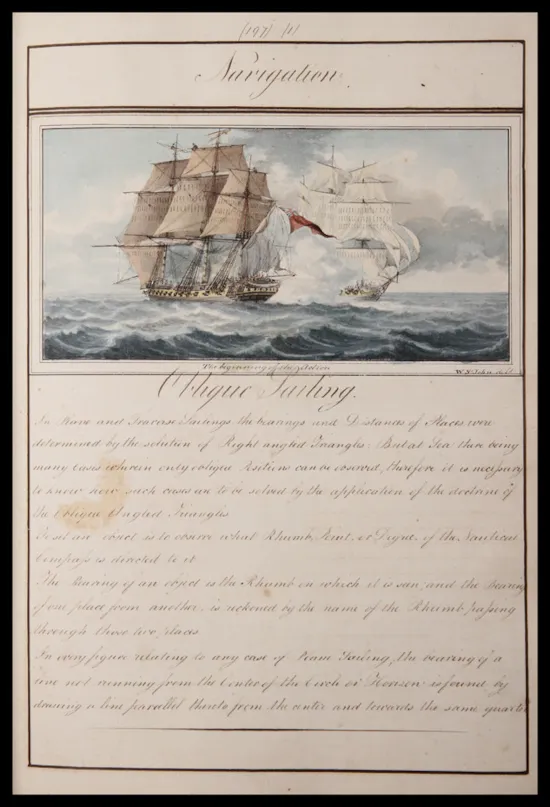 (197)
Navigation
The beginning of the Action
W. N. John delt
Oblique Sailing.
In Plane and Traverse Sailings the bearings and Distances of Places were
determined by the solution of Right angled Triangles: But at Sea there being
many Cases wherein only oblique Positions can be observed, therefore it is necessary
to know how such cases are to be solved by the application of the doctrine of
the Oblique Angled Triangles
To set an object is to observe what Rhumb, Point, or Degree, of the Nautical
Compass is directed to it
The Bearing of an object is the Rhumb on which it is seen, and the Bearing
of one place from another, is reckoned by the name of the Rhumb passing
through those two places
In every figure relating to any case of Plane Sailing, the bearing of a
line not running from the Center of the Circle or Horizon is found by
drawing a line parallel thereto from the center and towards the same quarter